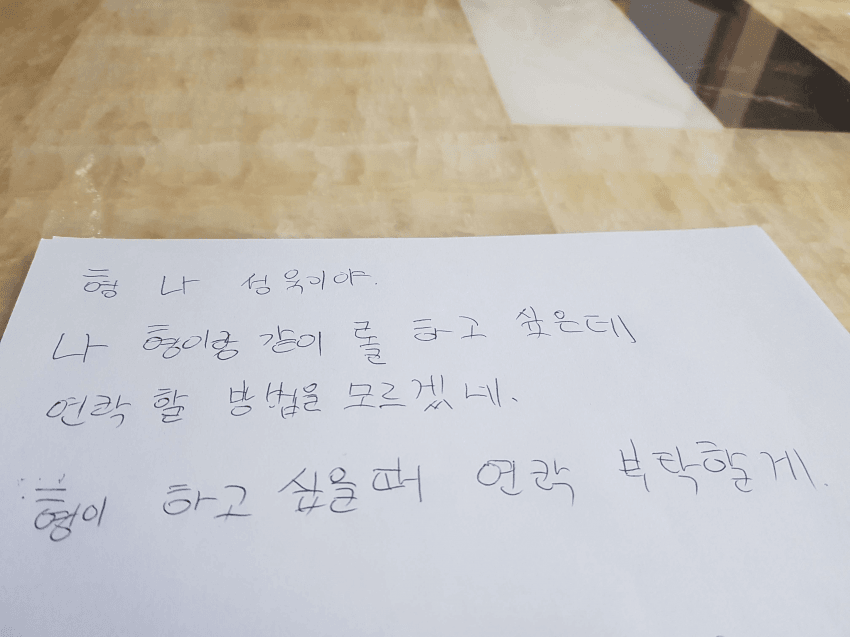 형 나 성욱이야.
나 형이랑 같이 롤 하고 싶은데,
연락 할 방법을 모르겠네.
형이 하고 싶을때 연락 부탁할게.